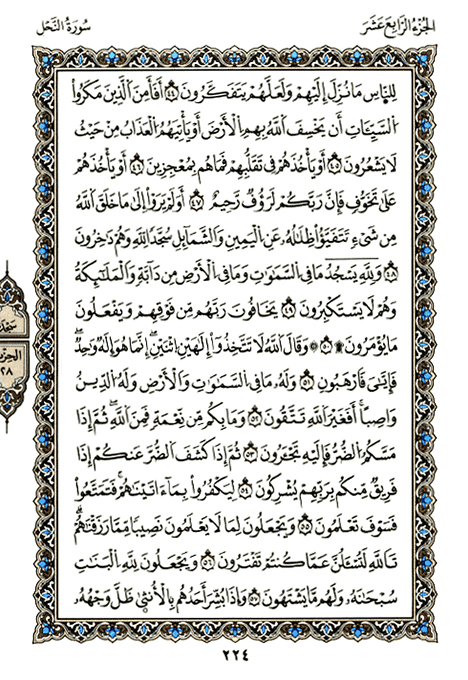 الجُزْءُ الرَّابِعَ عَشَرَ
سُورَةُ النَّحْلِ
لِلنَّاسِ مَا نُزِّلَ إِلَيْهِمْ وَلَعَلَّهُمْ يَتَفَكَّرُونَ ٤٤ أَفَأَمِنَ ٱلَّذِينَ مَكَرُوا۟
ٱلسَّيِّـَٔاتِ أَن يَخْسِفَ ٱللَّهُ بِهِمُ ٱلْأَرْضَ أَوْ يَأْتِيَهُمُ ٱلْعَذَابُ مِنْ حَيْثُ
لَا يَشْعُرُونَ ٤٥ أَوْ يَأْخُذَهُمْ فِى تَقَلُّبِهِمْ فَمَا هُم بِمُعْجِزِينَ ٤٦ أَوْ يَأْخُذَهُمْ
عَلَىٰ تَخَوُّفٍ فَإِنَّ رَبَّكُمْ لَرَءُوفٌ رَّحِيمٌ ٤٧ أَوَلَمْ يَرَوْا۟ إِلَىٰ مَا خَلَقَ ٱللَّهُ
مِن شَىْءٍ يَتَفَيَّؤُا۟ ظِلَـٰلُهُۥ عَنِ ٱلْيَمِينِ وَٱلشَّمَآئِلِ سُجَّدًا لِّلَّهِ وَهُمْ دَٰخِرُونَ
٤٨ وَلِلَّهِ يَسْجُدُ مَا فِى ٱلسَّمَـٰوَٰتِ وَمَا فِى ٱلْأَرْضِ مِن دَآبَّةٍ وَٱلْمَلَـٰٓئِكَةُ
وَهُمْ لَا يَسْتَكْبِرُونَ ٤٩ يَخَافُونَ رَبَّهُم مِّن فَوْقِهِمْ وَيَفْعَلُونَ
مَا يُؤْمَرُونَ ۩ ٥٠ ۞ وَقَالَ ٱللَّهُ لَا تَتَّخِذُوٓا۟ إِلَـٰهَيْنِ ٱثْنَيْنِ إِنَّمَا هُوَ إِلَـٰهٌ وَٰحِدٌ
فَإِيَّـٰىَ فَٱرْهَبُونِ ٥١ وَلَهُۥ مَا فِى ٱلسَّمَـٰوَٰتِ وَٱلْأَرْضِ وَلَهُ ٱلدِّينُ
وَاصِبًا أَفَغَيْرَ ٱللَّهِ تَتَّقُونَ ٥٢ وَمَا بِكُم مِّن نِّعْمَةٍ فَمِنَ ٱللَّهِ ثُمَّ إِذَا
مَسَّكُمُ ٱلضُّرُّ فَإِلَيْهِ تَجْـَٔرُونَ ٥٣ ثُمَّ إِذَا كَشَفَ ٱلضُّرَّ عَنكُمْ إِذَا
فَرِيقٌ مِّنكُم بِرَبِّهِمْ يُشْرِكُونَ ٥٤ لِيَكْفُرُوا۟ بِمَآ ءَاتَيْنَـٰهُمْ فَتَمَتَّعُوا۟
فَسَوْفَ تَعْلَمُونَ ٥٥ وَيَجْعَلُونَ لِمَا لَا يَعْلَمُونَ نَصِيبًا مِّمَّا رَزَقْنَـٰهُمْ
تَٱللَّهِ لَتُسْـَٔلُنَّ عَمَّا كُنتُمْ تَفْتَرُونَ ٥٦ وَيَجْعَلُونَ لِلَّهِ ٱلْبَنَـٰتِ
سُبْحَـٰنَهُۥ وَلَهُم مَّا يَشْتَهُونَ ٥٧ وَإِذَا بُشِّرَ أَحَدُهُم بِٱلْأُنثَىٰ ظَلَّ وَجْهُهُۥ
سجدة
الحزب
٢٨
٢٢٤